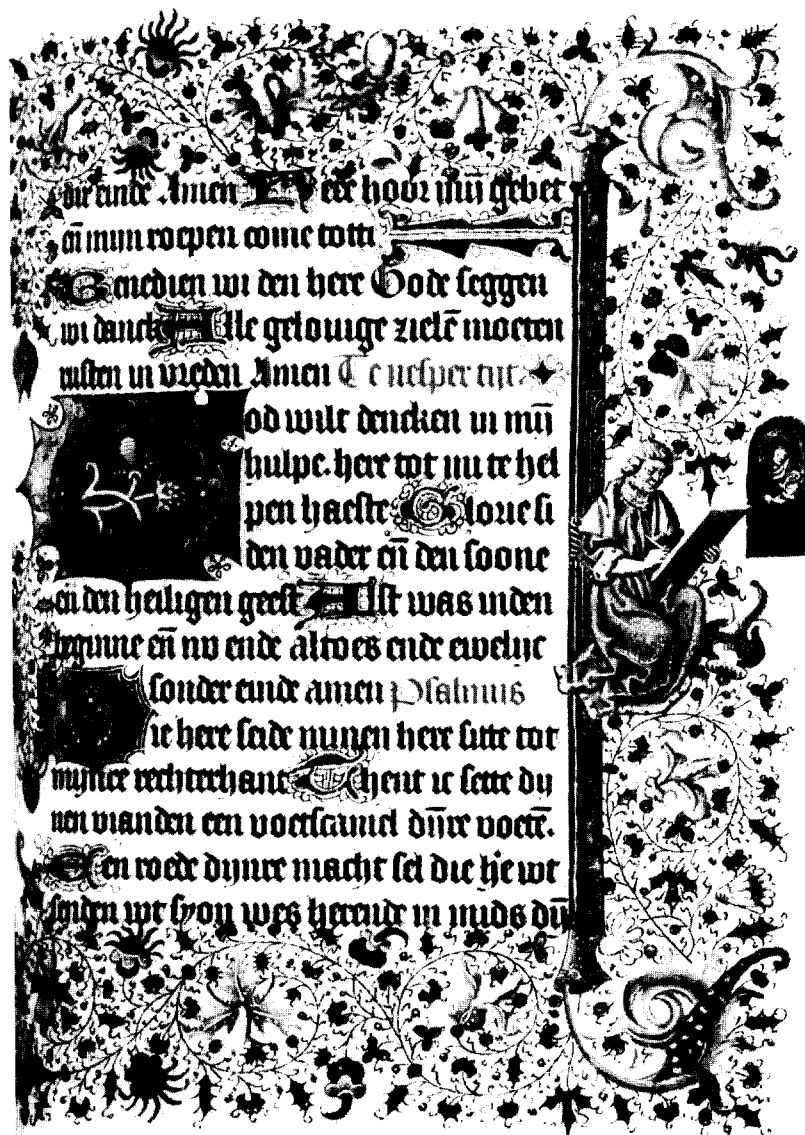 die einde Amen Here hoor mijn gebet
eñ mijn roepen come totti
Benedien wi den here Gode seggen
wi danck Alle gelouige zielē moeten
rusten in vreden Amen Te vesper tijt.
God wilt dencken in mij
hulpe. here tot mi te hel
pen haeste Glorie si
den vader eñ den soone
eñ den heiligen geest Alst was inden
beginne eñ nv ende altoes ende ewelijc
sonder einde amen Psalmus
Die here seide minen here sitte tot
mijnre rechterhant Thent ic sette dij
nen vianden een voetscamel dijnre voetē.
Een roede dijnre macht sel die he wt
senden wt syon wes herende in mids dij